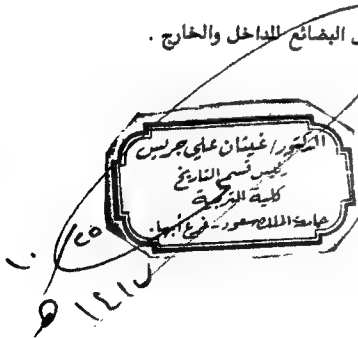 البضائع للداخل والخارج .
الدكتور / غيثان علي جريس
رئيس قسم التاريخ
كلية التربية
جامعة الملك سعود - فرع أبها.
١٠
٢٥
١٤١٧